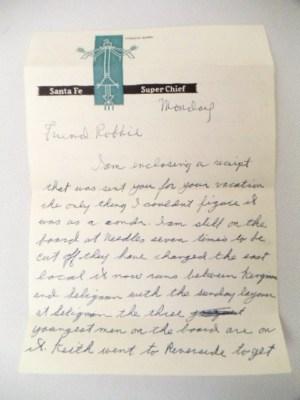 Santa Fe Super Chief
Monday
Friend Robbie
I am enclosing a receipt
that was sent you for your vacation
the only thing I couldent figure it
was as a condr. I am still on the
board at Needles seven times to be
cut off. they have changed the east
local it now runs between Kingman
and Seligman with the sunday layover
at Seligman the three
youngest men on the board are on
it. Keith went to Riverside to get